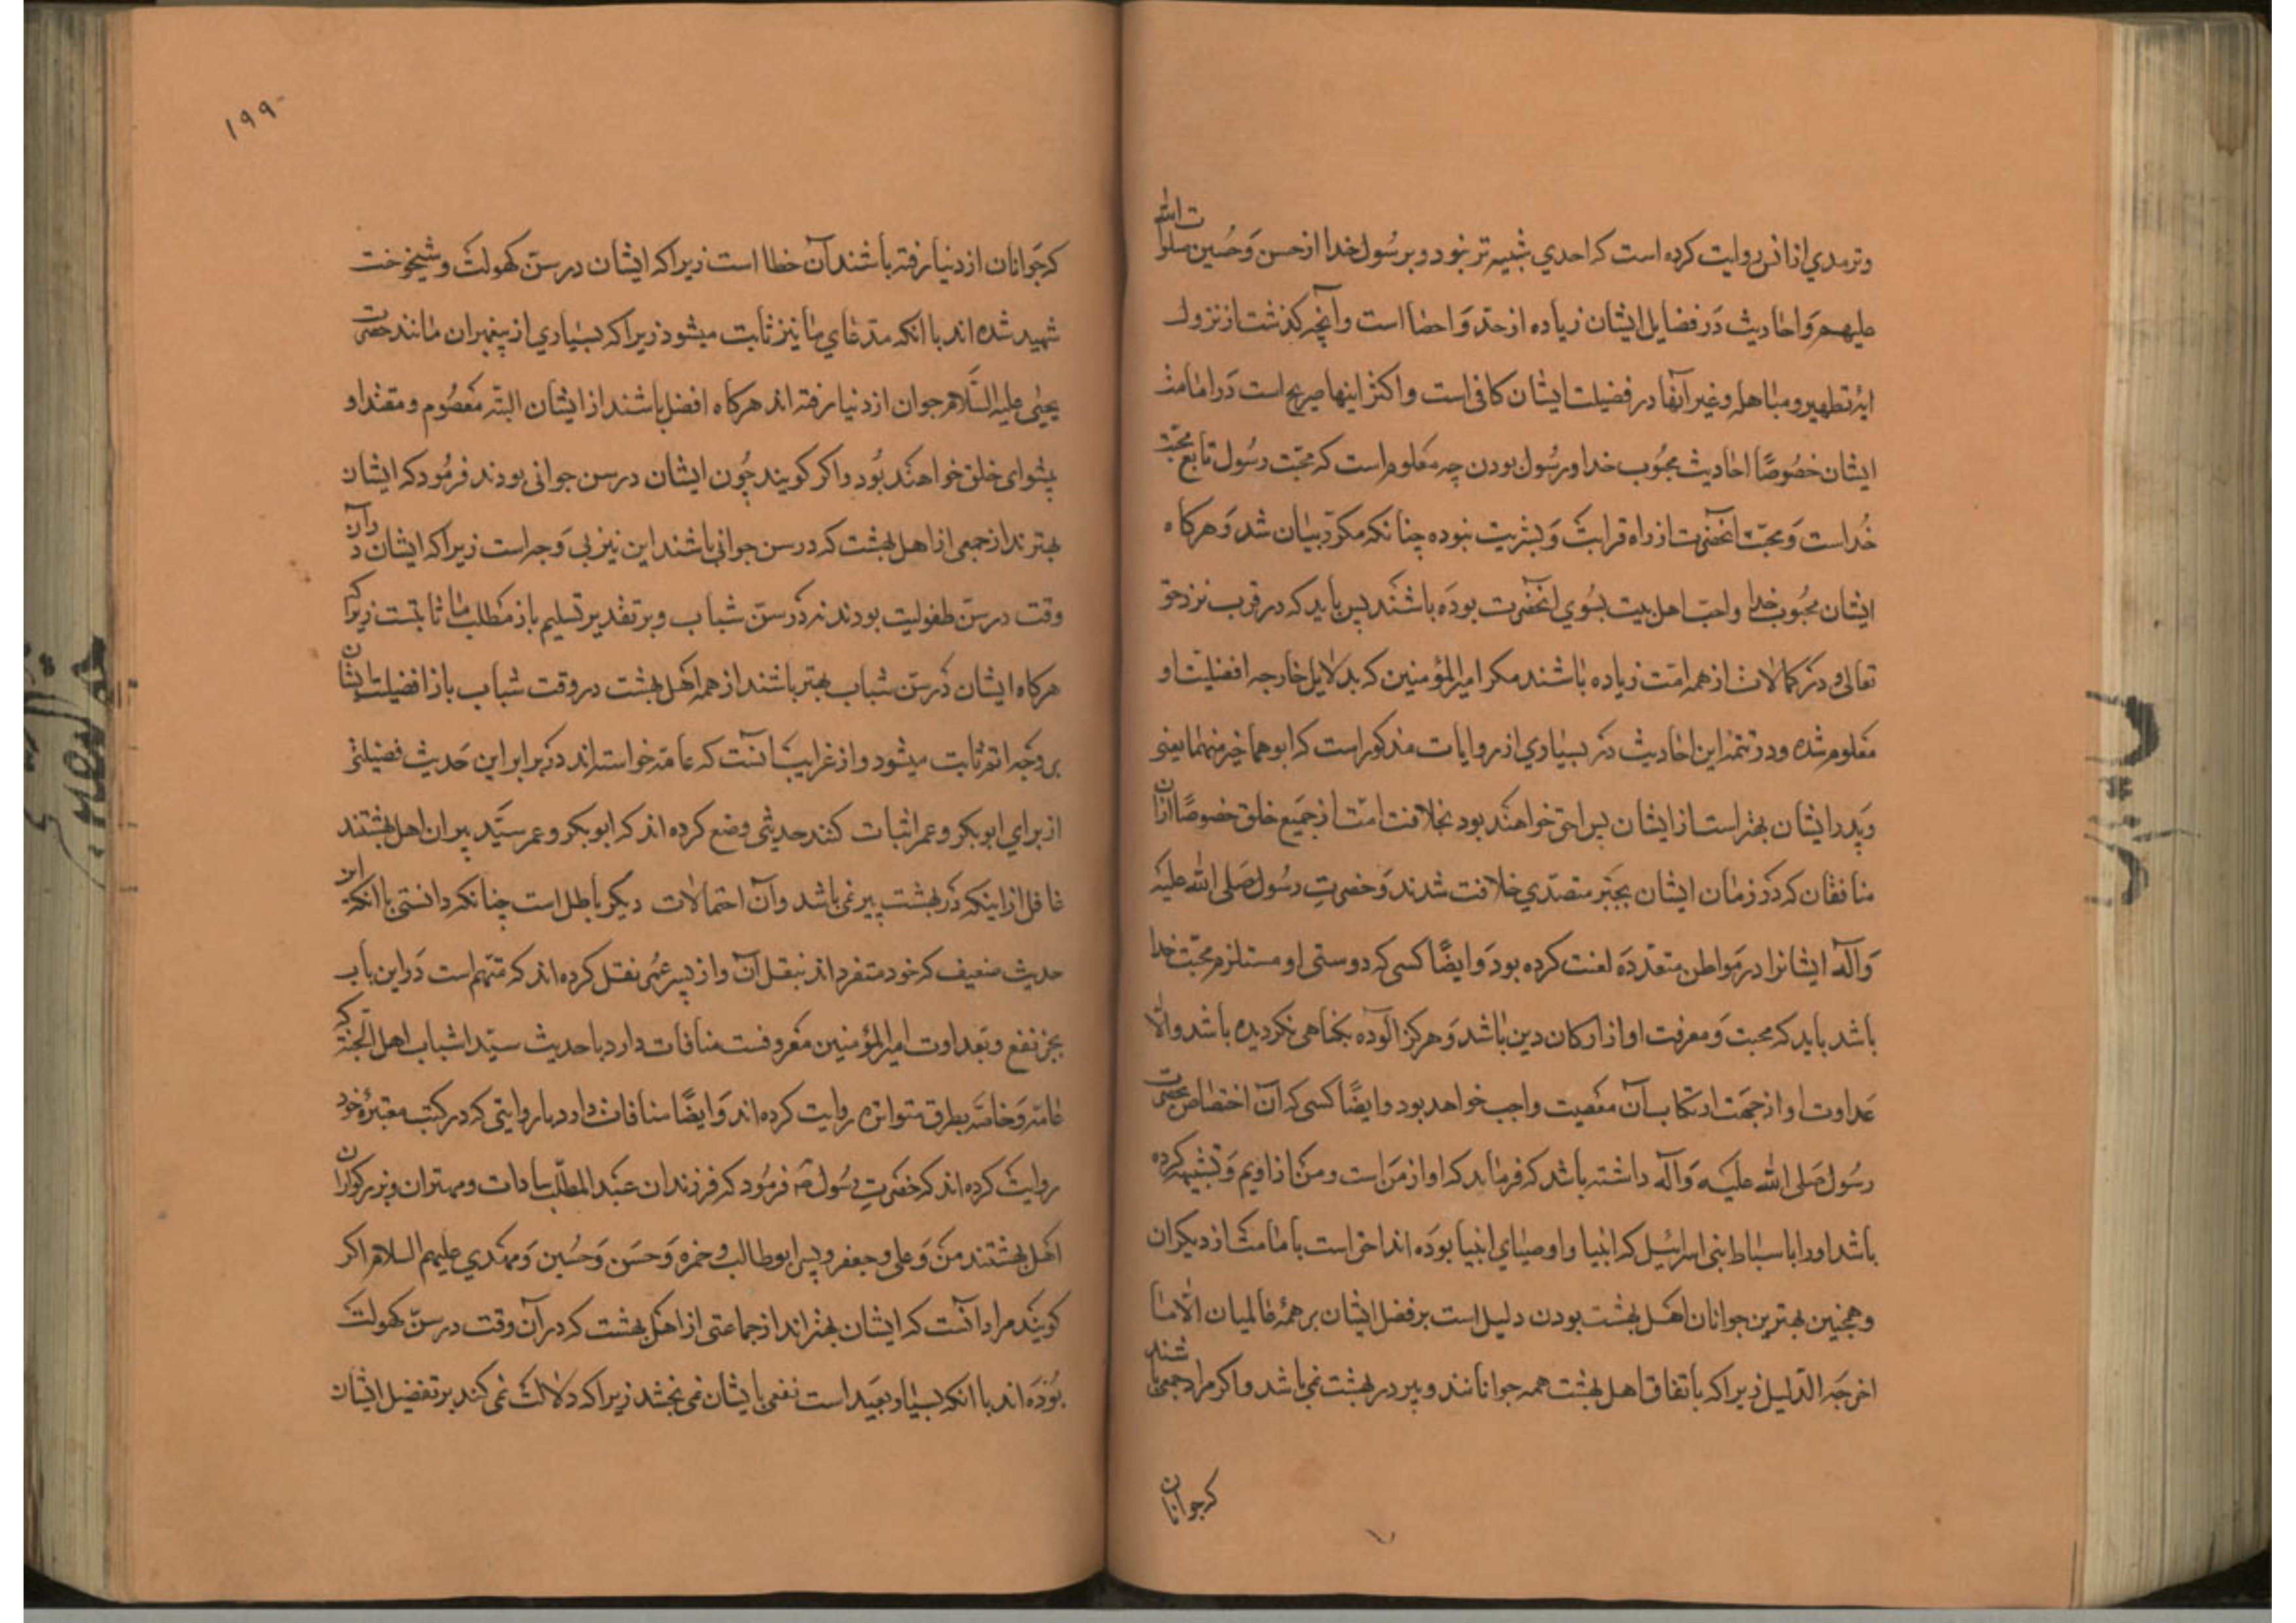 وترمدي از انس روایت کرده است که احدي شبیه تر نبود و بر سُول خدا از حسن وَ حُسین صلوات الله
علیهم وَ احادیث دَر فضایل ایشان زیاده از حدّ وَ احصا است و آنچه کذشت از نزول
ایهٔ تطهیر و مباهله و غیر آنها در فضیلت ایشان کافی است و اکثر اینها صریح است دَر امامت
ایشان خصُوصًا احادیث محبُوب خدا و رسُول بودن چه معلوم است که محبّت رسُول تابع محبّت
خُداست وَ محبّت آنحضرت از راه قرابت وَ بشریت نبوده چنانکه مکرّر بیان شد وَ هرکاه
ایشان محبُوب خدا و احبّ اهل بیت بسُوي انحضرت بودَه باشند پس باید که در قرب نزد حق
تعالی و در کمالات از همه امّت زیاده باشند مکر امیر المؤمنین که بدلایل خارجه افضلیت او
معلوم شده و در تتمهٔ این احادیث در بسیاري از روایات مذکور است که ابوهما خیر منهما یعنی
وَ پدر ایشان بهتر است از ایشان پس احق خواهند بود بخلافت امّت از جمیع خلق خصوصًا از آن
منافقان که در زمان ایشان بجبر متصدّي خلافت شدند وَ حضرتِ رسُول صَلی الله علیه
وَ آله ایشانرا در مواطن متعدّدَه لعنت کرده بود وَ ایضًا کسی که دوستی او مستلزم محبّت خدا
باشد باید که محبت وَ معرفت او از ارکان دین باشد وَ هرکز آلوده بکناهی نکردیده باشد و الّا
عداوت او از جهت ارتکاب آن معصیت واجب خواهد بود و ایضًا کسی که آن اختصاص بحضرت
رسُول صَلی الله علیه وَ آله داشته باشد که فرماید که او از من است و من از اویم وَ تشبیه کرده
باشد او را با سباط بنی اسرائیل که انبیا و اوصیاي انبیا بودَه اند احق است بامامت از دیکران
و همچنین بهترین جوانان اهل بهشت بودن دلیل است بر فضل ایشان بر همهٔ عالمیان الّا ما
اخرجه الدّلیل زیراکه باتفاق اهل بهشت همه جوانانند و پیر در بهشت نمی باشد و اکر مراد جمعی باشند
که جوانان
۱۹۹
که جَوانان از دنیا رفته باشند آن خطا است زیراکه ایشان در سنّ کهولت و شیخوخت
شهید شده اند با آنکه مدّعاي ما نیز ثابت میشود زیراکه بسیاري از پیغمبران مانند حضرت
یحیٰی علیه السّلام جوان از دنیا رفته اند هرکاه افضل باشند از ایشان البته معصُوم و مقتدا و
پیشوای خلق خواهند بُود و اکر کویند چُون ایشان در سن جوانی بودند فرمُود که ایشان
بهترند از جمعی از اهل بهشت که در سن جوانی باشند این نیز بی وَجه است زیراکه ایشان در آن
وقت در سنّ طفولیت بودند نه دَر سنّ شباب و بر تقدیر تسلیم باز مطلب ما ثابتست زیراکه
هرکاه ایشان دَر سنّ شباب بهتر باشند از همه اهل بهشت در وقت شباب باز افضلیت ایشان
بر وَجه اتم ثابت میشود و از غرایب آنست که عامّه خواسته اند در برابر این حَدیث فضیلتی
از براي ابوبکر و عمر اثبات کنند حدیثی وضع کرده اند که ابوبکر و عمر سیّد پیران اهل بهشتند
غافل از اینکه دَر بهشت پیر نمی باشد و آن احتمالات دیکر باطل است چنانکه دانستی با آنکه این
حدیث ضعیف که خود متفرد اند بنقل آن و از پسر عُمر نقل کرده اند که متّهم است دَر این باب
بجر نفع و بعداوت امیر المؤمنین معروفست منافات دارد با حدیث سیّدا شباب اهل الجنّة که
عامّه وَ خاصّه بطرق متواتره روایت کرده اند وَ ایضًا منافات دارد با روایتی که در کتب معتبرهٔ خود
روایت کرده اند که حضرتِ رسُول ص فرمُود که فرزندان عبد المطلّب سادات و مهتران و بزرکواران
اهل بهشتند من وَ علی و جعفر و پسر ابوطالب و حمزه وَ حَسَن وَ حُسین وَ مهدي علیهم السلام اکر
کویند مراد آنست که ایشان بهترند از جماعتی از اهل بهشت که در آن وقت در سنّ کهولت
بودَه اند با آنکه بسیار بعید است نفعی بایشان نمی بخشد زیراکه دلالت نمی کند بر تفضیل ایشان